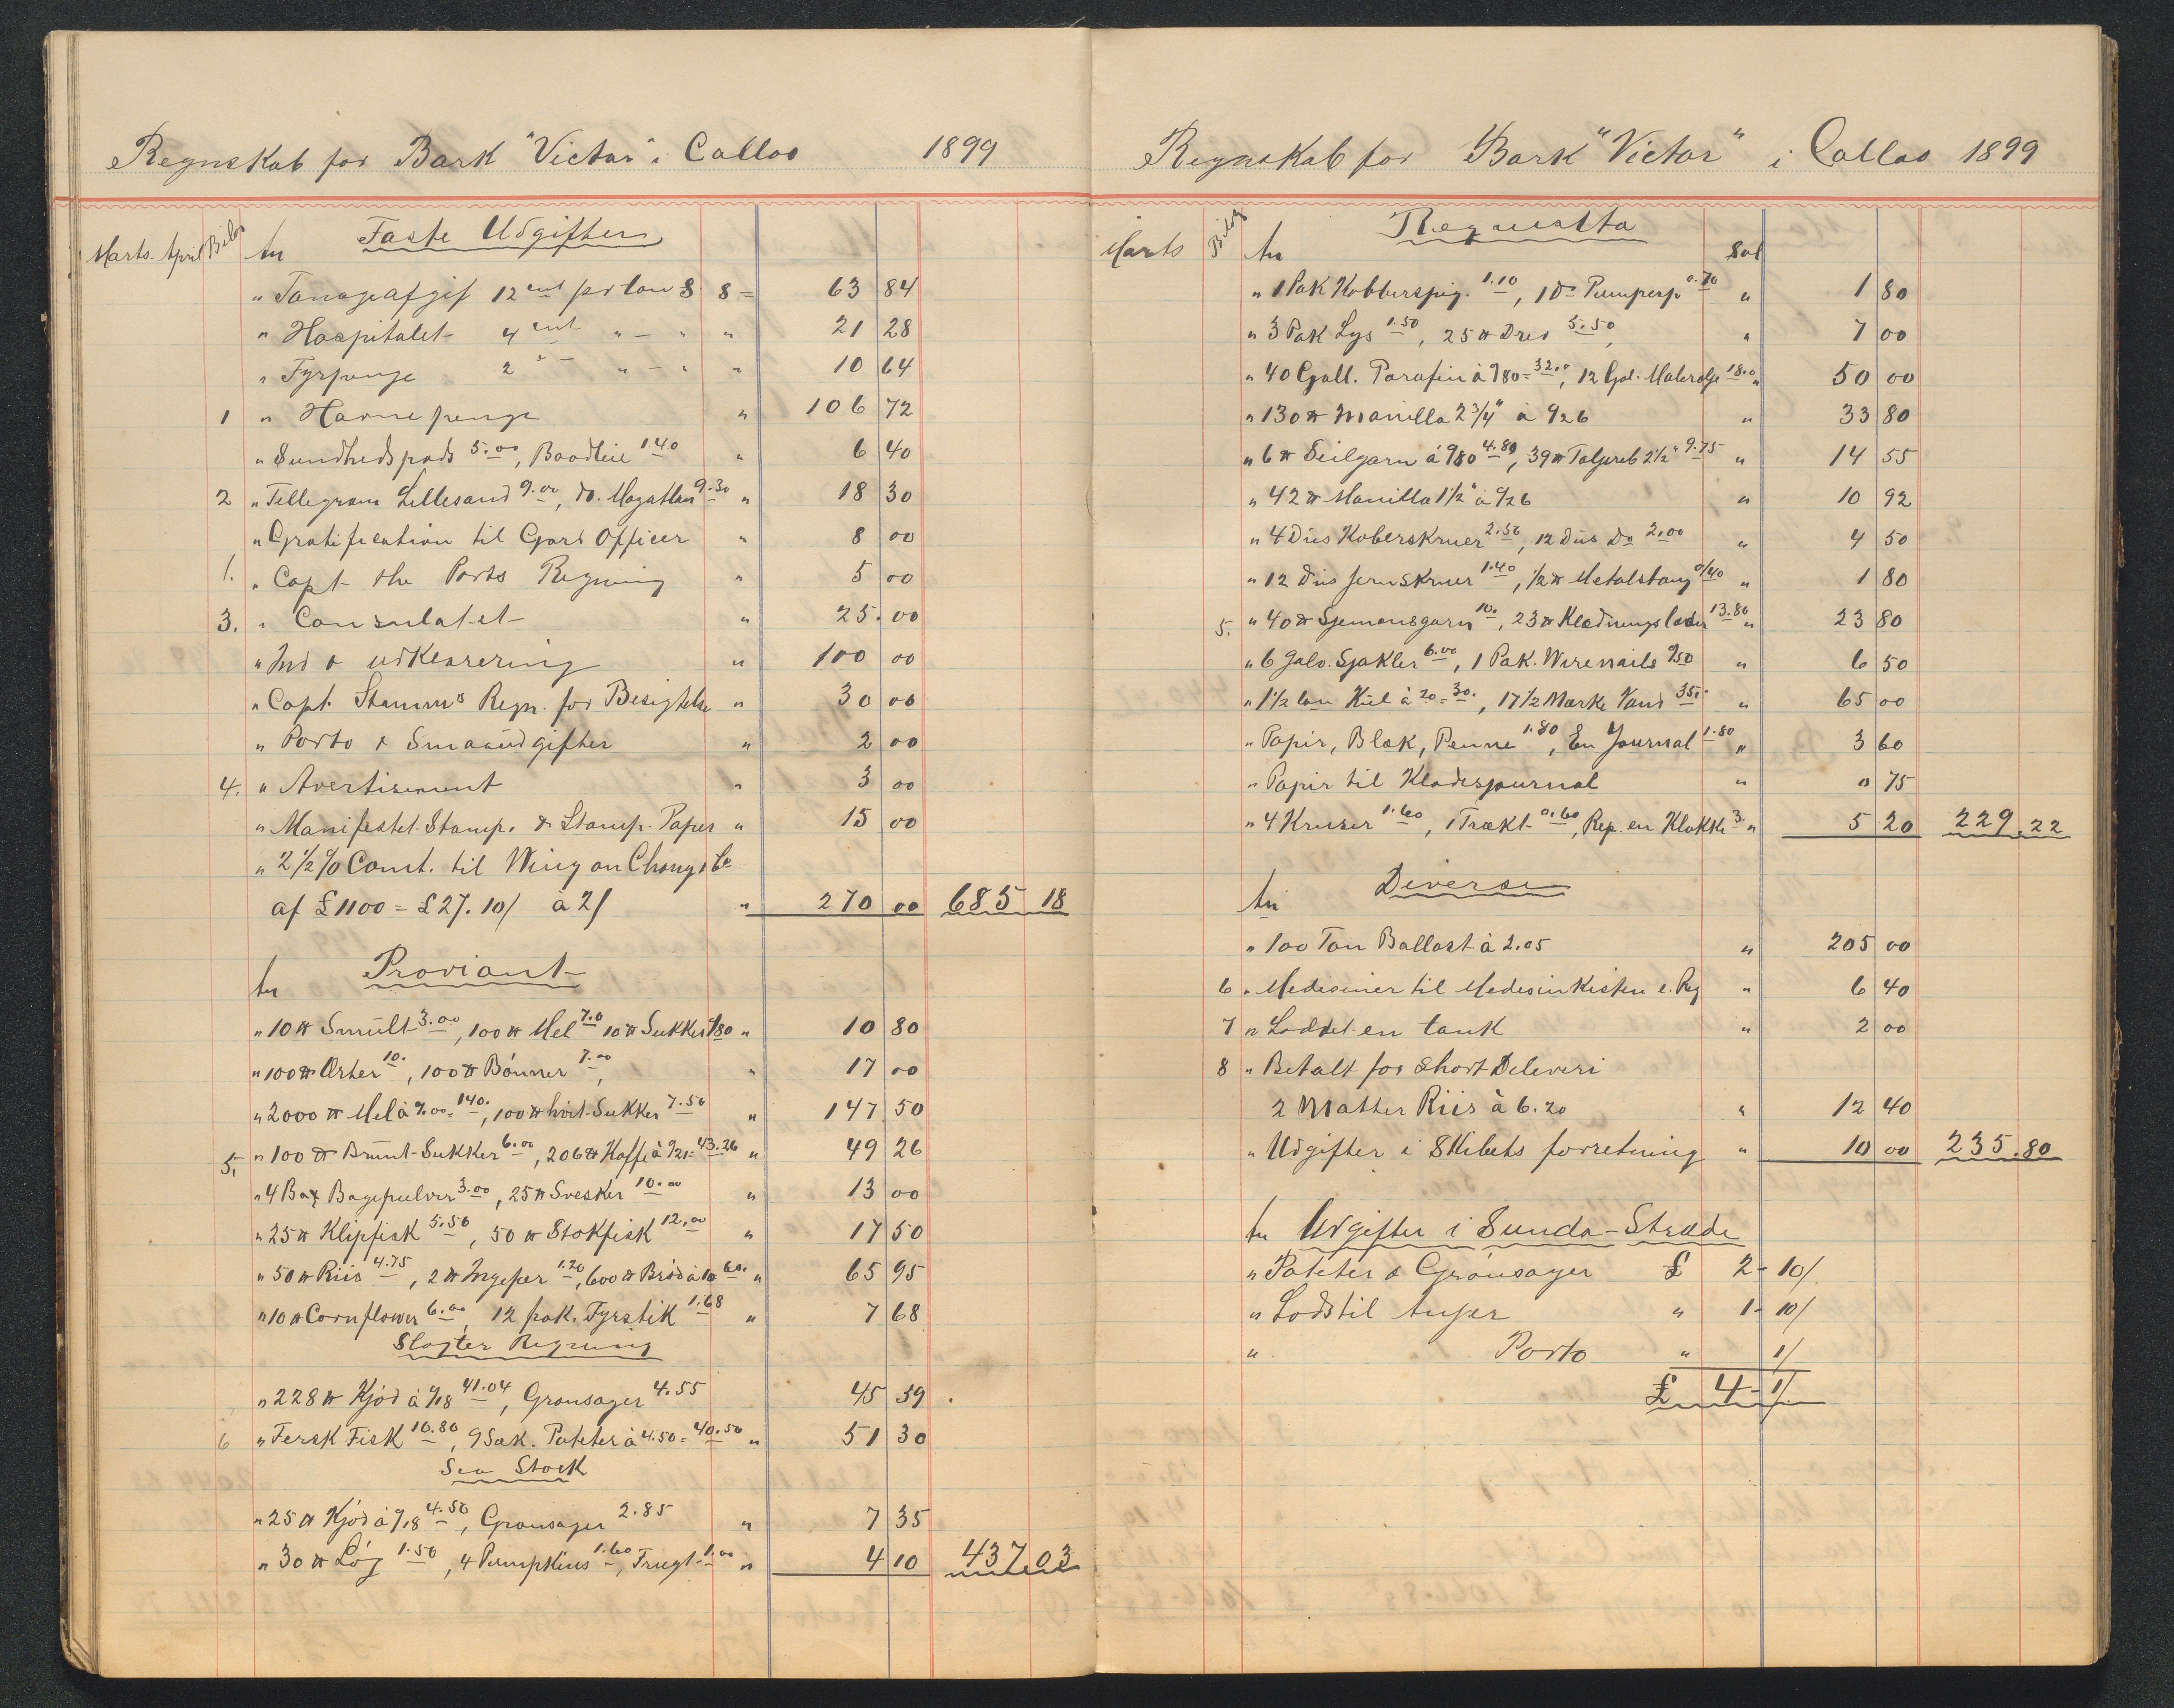 Regnskab for Bark "Victor" i Callao 1899
Marts. April Bilag An Faste Udgifter
" Tonageafgif 12 cent pr ton S. 8 = 63 84
" Hospitalet 4 cent " - " " 21 28
" Fyrpenge 2 " - " - " " 10 64
1 " Havnepenge " 106 72
" Sundhedspads 5.00, Baadleie 1.40 " 6 40
2 " Tellegram Lillesand 9.00, do. Mazatlan 9.30 " 18 30
" Gratification til Gard Officer " 8 00
1. " Capt the Ports Regning " 5 00
3. " Consulatet " 25.00
" Ind & udklarering " 100 00
" Capt. Stamms Regn. for Besigtelse " 30 00
" Porto & Smaaudgifter " 2 00
4. " Avertisement " 3 00
" Manifestet Stamp. & Stamp. Paper " 15 00
" 2 1/2 % Comt. til Wing on Chong & Co
af £ 1100 = £ 27. 10/ à 2/ " 270 00 685 18
An Proviant
" 10 ℔ Smult 3.00, 100 ℔ Mel 7.0 10 ℔ Sukker 0/80 " 10 80
" 100 ℔ Erter 10., 100 ℔ Bønner 7.00, " 17 00
" 2000 ℔ Mel à 7.00 = 140., 100 ℔ hvit Sukker 7.50 " 147 50
5. " 100 ℔ Brunt Sukker 6.00, 206 ℔ Kaffe à 0/21 = 43.26 " 49 26
" 4 Bax Bagepulver 3.00, 25 ℔ Svesker 10.00 " 13 00
" 25 ℔ Klipfisk 5.50, 50 ℔ Stokfisk 12.00 " 17 50
" 50 ℔ Riis 4.75, 2 ℔ Ingefer 1.20, 600 ℔ Brød à 10 60. " 65 95
" 10 ℔ Cornflower 6.00, 12 pak. Fyrstik 1.68 " 7 68
Slagter Regning
" 228 ℔ Kjød à 0/18 41.04, Grønsager 4.55 45 59
6 " Fersk Fisk 10.80, 9 Sæk. Poteter à 4.50 = 40.50 " 51 30
Sea Stock
" 25 ℔ Kjød à 0/18 4.50, Grønsager 2.85 " 7 35
" 30 ℔ Løg 1.50, 4 Pumpkins 1.60, Frugt 1.00 " 4 10 437.03
Regnskab for Bark "Victor" i Callao 1899
Marts Bilag An Requisita Sol
" 1 Pak Kobberspig. 1.10, 1 Do Pumpesp. 0.70 " 1 80
" 3 Pak Lys 1.50, 25 ℔ Drev 5.50, " 7 00
" 40 Gall. Parafin à 0/80 = 32.00, 12 Gal. Malerolje 18.00 " 50 00
" 130 ℔ Manilla 2 3/4" à 0/26 " 33 80
" 6 ℔ Seilgarn à 0/80 4.80, 39 ℔ Taljereb 2 1/2" 9.75 " 14 55
" 42 ℔ Manilla 1 1/2" à 0/26 " 10 92
" 4 Dus Koberskruer 2.50, 12 Dus Do 2.00 " 4 50
" 12 Dus Jernskruer 1.40, 1/2 ℔ Metalstang 0/40 " 1 80
5. " 40 ℔ Sjemansgarn 10., 23 ℔ Klædningslæder 13.80 " 23 80
" 6 Galv. Sjakler 6.00, 1 Pak. Wirenails 0/50 " 6 50
" 1 1/2 ton Kul à 20 = 30., 17 1/2 Mark Vand 35. " 65 00
" Papir, Blæk, Penne 1.80, En Journal 1.80 " 3 60
" Papir til Kladejournal " " 75
" 4 Kruser 1.60, 1 Trækt 0.60, Rep. en Klokke 3. " 5 20 229.22
An Diverse
" 100 Ton Ballast à 2.05 " 205 00
6 " Medesiner til Medesinkisten e. Reg " 6 40
7 " Loddet en tank " 2 00
8 " Betalt for Short Deleveri
2 Matter Riis à 6.20 " 12 40
" Udgifter i Skibets forretning " 10 00 235.80
An Udgifter i Sunda-Stræde
" Poteter & Grønsager £ 2 - 10/
" Lods til Anjer " 1 - 10/
" Porto " 1/
£ 4 - 1/